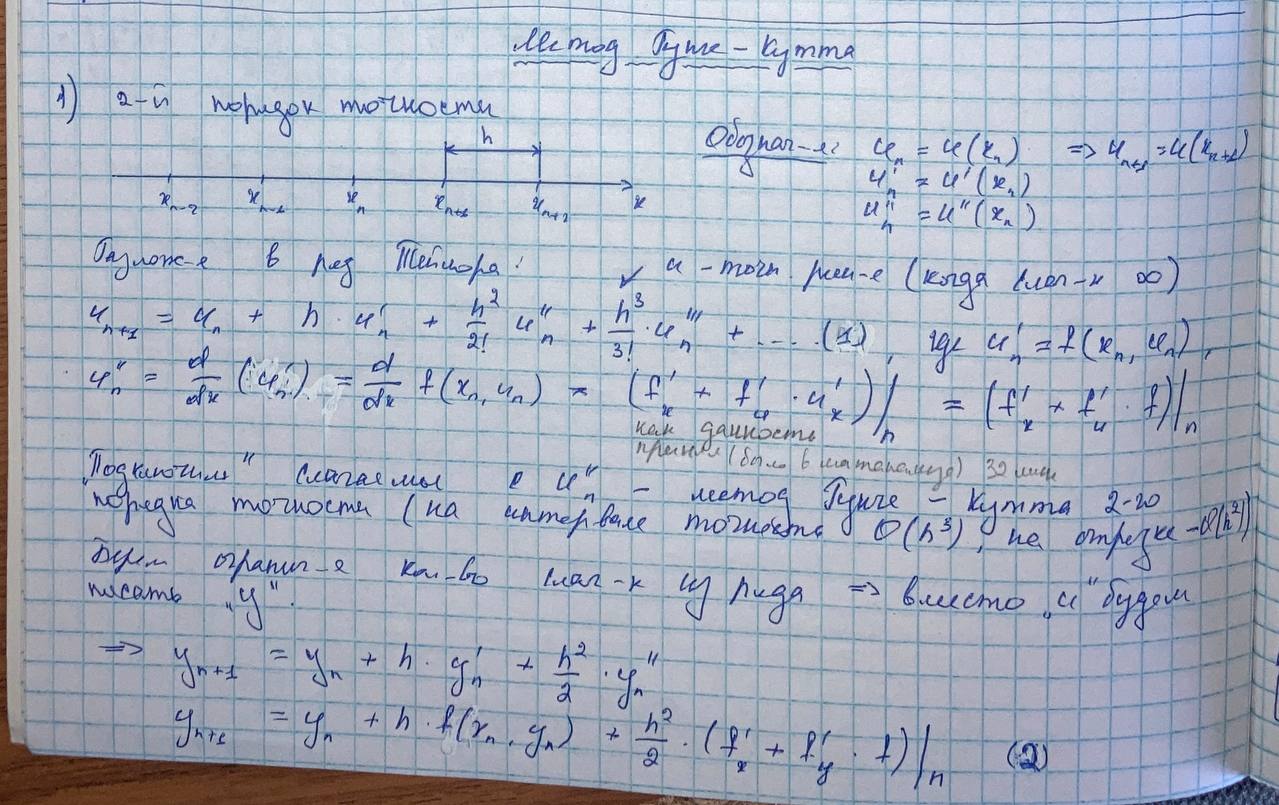 Метод Рунге - Кутта
1) 2-й порядок точности
h
x_{n-2} x_{n-1} x_n x_{n+1} x_{n+2} x
Обознач-я: u_n = u(x_n) => u_{n+1} = u(x_{n+1})
u'_n = u'(x_n)
u''_n = u''(x_n)
Разлож-е в ряд Тейлора: ✓ u - точн. реш-е (когда слаг-х ∞)
u_{n+1} = u_n + h · u'_n + h²/2! u''_n + h³/3! · u'''_n + .... (1), где u'_n = f(x_n, u_n),
u''_n = d/dx (u'_n) = d/dx f(x_n, u_n) = (f'_x + f'_u · u'_x)|_n = (f'_x + f'_u · f)|_n
как данность
приняли (было в матанализе) 32 мин
„Подключим" слагаемы с u''_n - метод Рунге - Кутта 2-го
порядка точности (на интервале точность O(h³), на отрезке - O(h²))
Берем огранич-е кол-во слаг-х из ряда => вместо „u" будем
писать „y".
=> y_{n+1} = y_n + h · y'_n + h²/2 · y''_n
y_{n+1} = y_n + h · f(x_n, y_n) + h²/2 · (f'_x + f'_y · f)|_n (2)